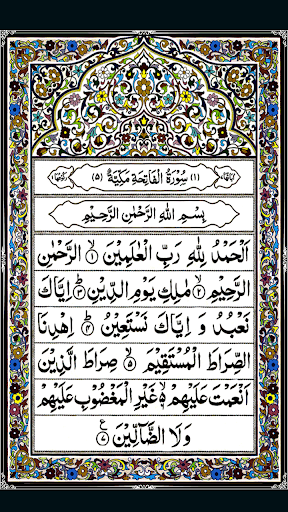 اٰیاتها ۷ (۱) سُوْرَةُ الْفَاتِحَةِ مَكِّیَّةٌ (۵) رکوعها ۱
بِسْمِ اللّٰهِ الرَّحْمٰنِ الرَّحِیْمِ
اَلْحَمْدُ لِلّٰهِ رَبِّ الْعٰلَمِیْنَ ۙ۱ الرَّحْمٰنِ
الرَّحِیْمِ ۙ۲ مٰلِكِ یَوْمِ الدِّیْنِ ؕ۳ اِیَّاكَ
نَعْبُدُ وَ اِیَّاكَ نَسْتَعِیْنُ ؕ۴ اِهْدِنَا
الصِّرَاطَ الْمُسْتَقِیْمَ ۙ۵ صِرَاطَ الَّذِیْنَ
اَنْعَمْتَ عَلَیْهِمْ ۙ۶ غَیْرِ الْمَغْضُوْبِ عَلَیْهِمْ
وَلَا الضَّآلِّیْنَ ۧ۷